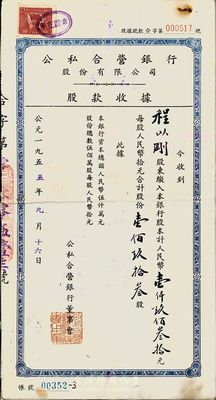 股據號數合字第000517號
公私合營銀行
股份有限公司
股款收據
今收到
程以剛股東繳入本銀行股本計人民幣壹仟玖佰叁拾元
每股人民幣拾元合計股份壹佰玖拾叁股
此據
本銀行資本總額人民幣伍仟萬元
股份總數伍佰萬股每股人民幣拾元
公私合營銀行董事會
公元一九五五年九月十六日
帳號 00352-3